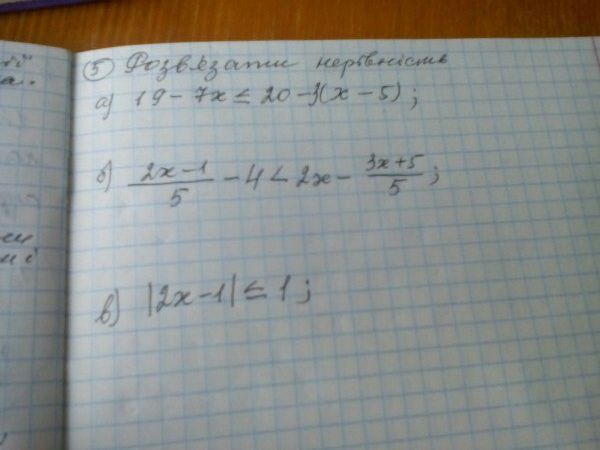 5 Розв'язати нерівність
а) 19 - 7x ≤ 20 - 3(x - 5);
б) \frac{2x-1}{5} - 4 < 2x - \frac{3x+5}{5};
в) |2x - 1| ≤ 1;